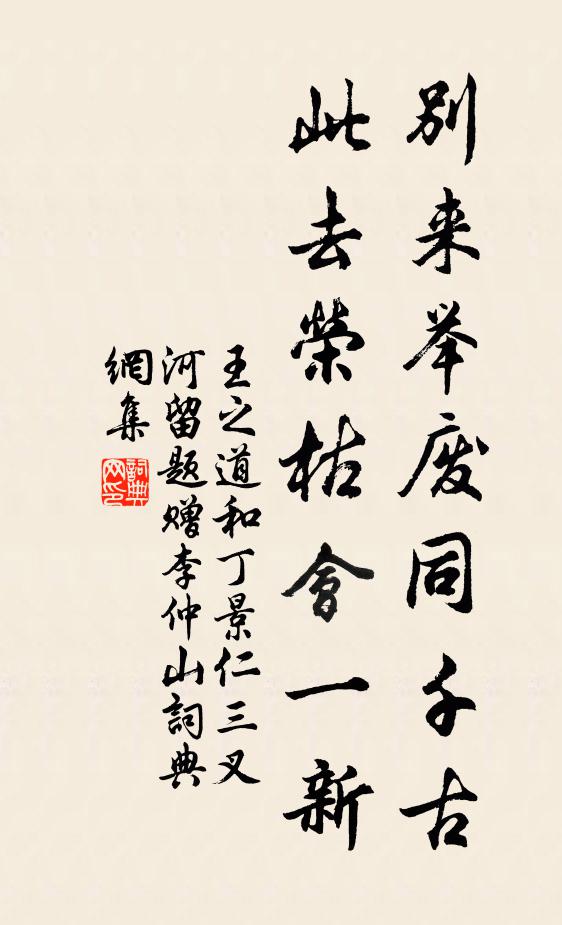 别来举废同千古
此去榮枯會一新
王之道和丁景仁三叉
河留题赠李仲山詞典
網集
詞典
网印